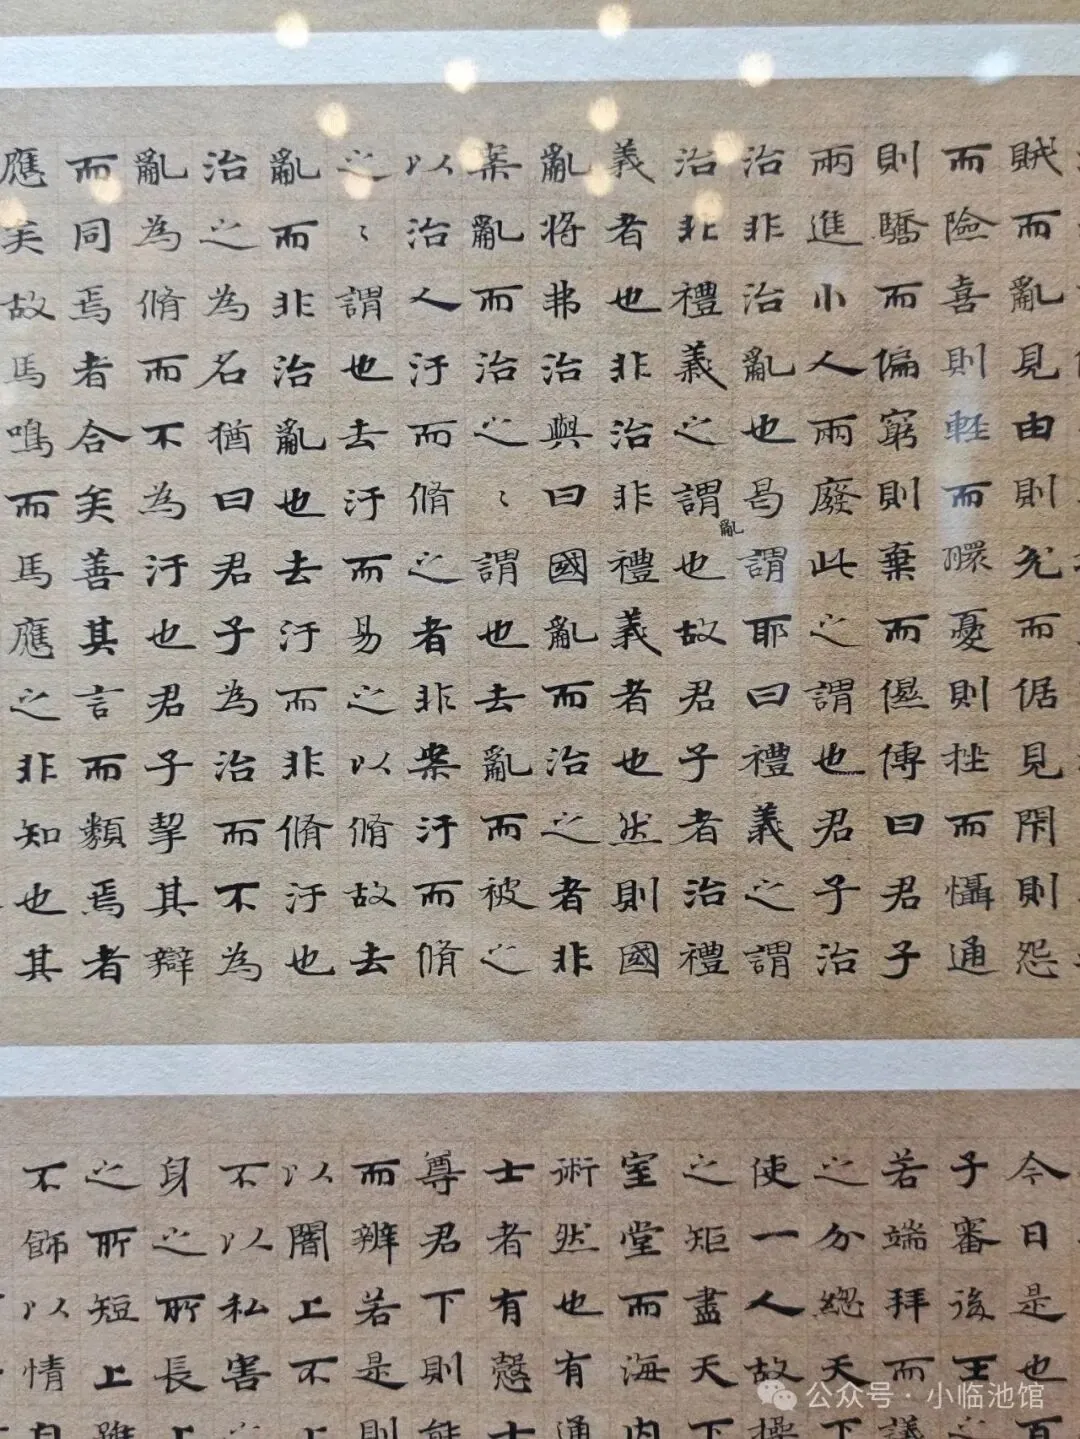 賊而亂見由則兊而倨見閇則怨
而險喜則輕而翾憂則挫而懾通
則驕而偏窮則棄而儑傳曰君子
兩進小人兩廢此之謂也君子治
治非治亂也曷亂謂耶曰禮義之謂
治非禮義之謂也故君子者治禮
義者也非治非禮義者也然則國
亂將弗治與曰國亂而治之者非
案亂而治之〻謂也去亂而被之
以治人汙而脩之者非案汙而脩
之〻謂也去汙而易之以脩故去
亂而非治亂也去汙而非脩汙也
治之為名猶曰君子為治而不為
亂為脩而不為汙也君子挈其辯
而同焉者合矣善其言而類焉者
應矣故馬鳴而馬應之非知也其
今日是也百
子審後王之
若端拜而議
之分總天下
使一人故操
之矩盡天下
室堂而海內
術然也有通
士者有愨士
尊君下則能
而辨若是則
以闇上不上
不以私害之
身之所長上
之所短上雖
不飾以情自
公众号·小临池馆